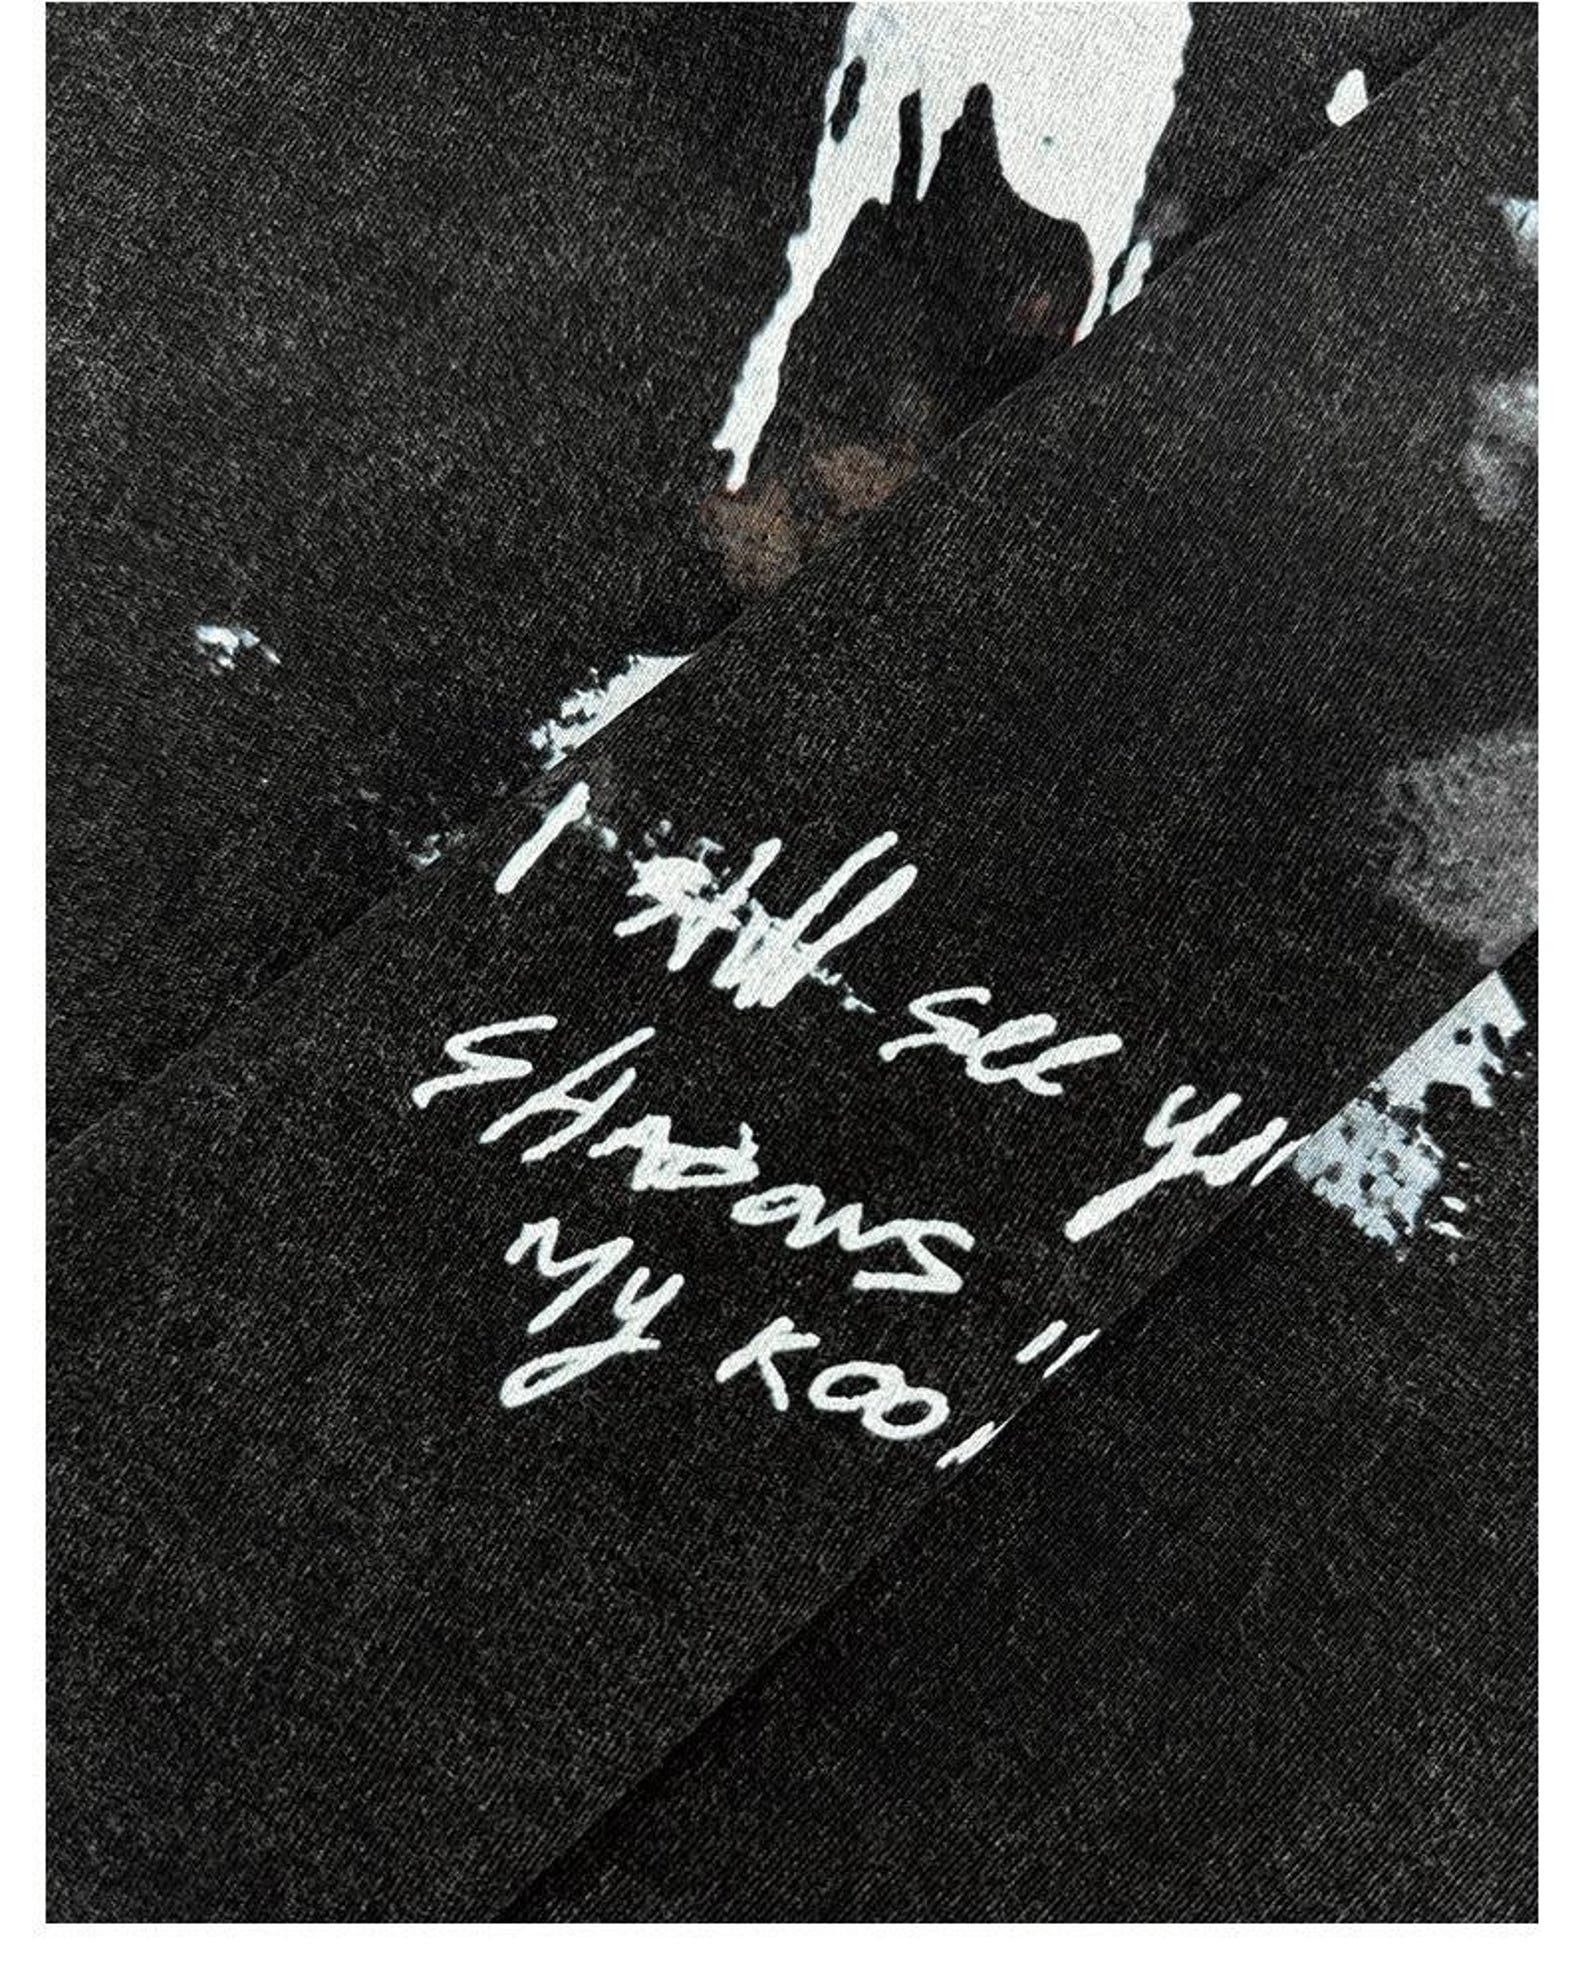 I still see yo
SHADOWS
My KOO
"